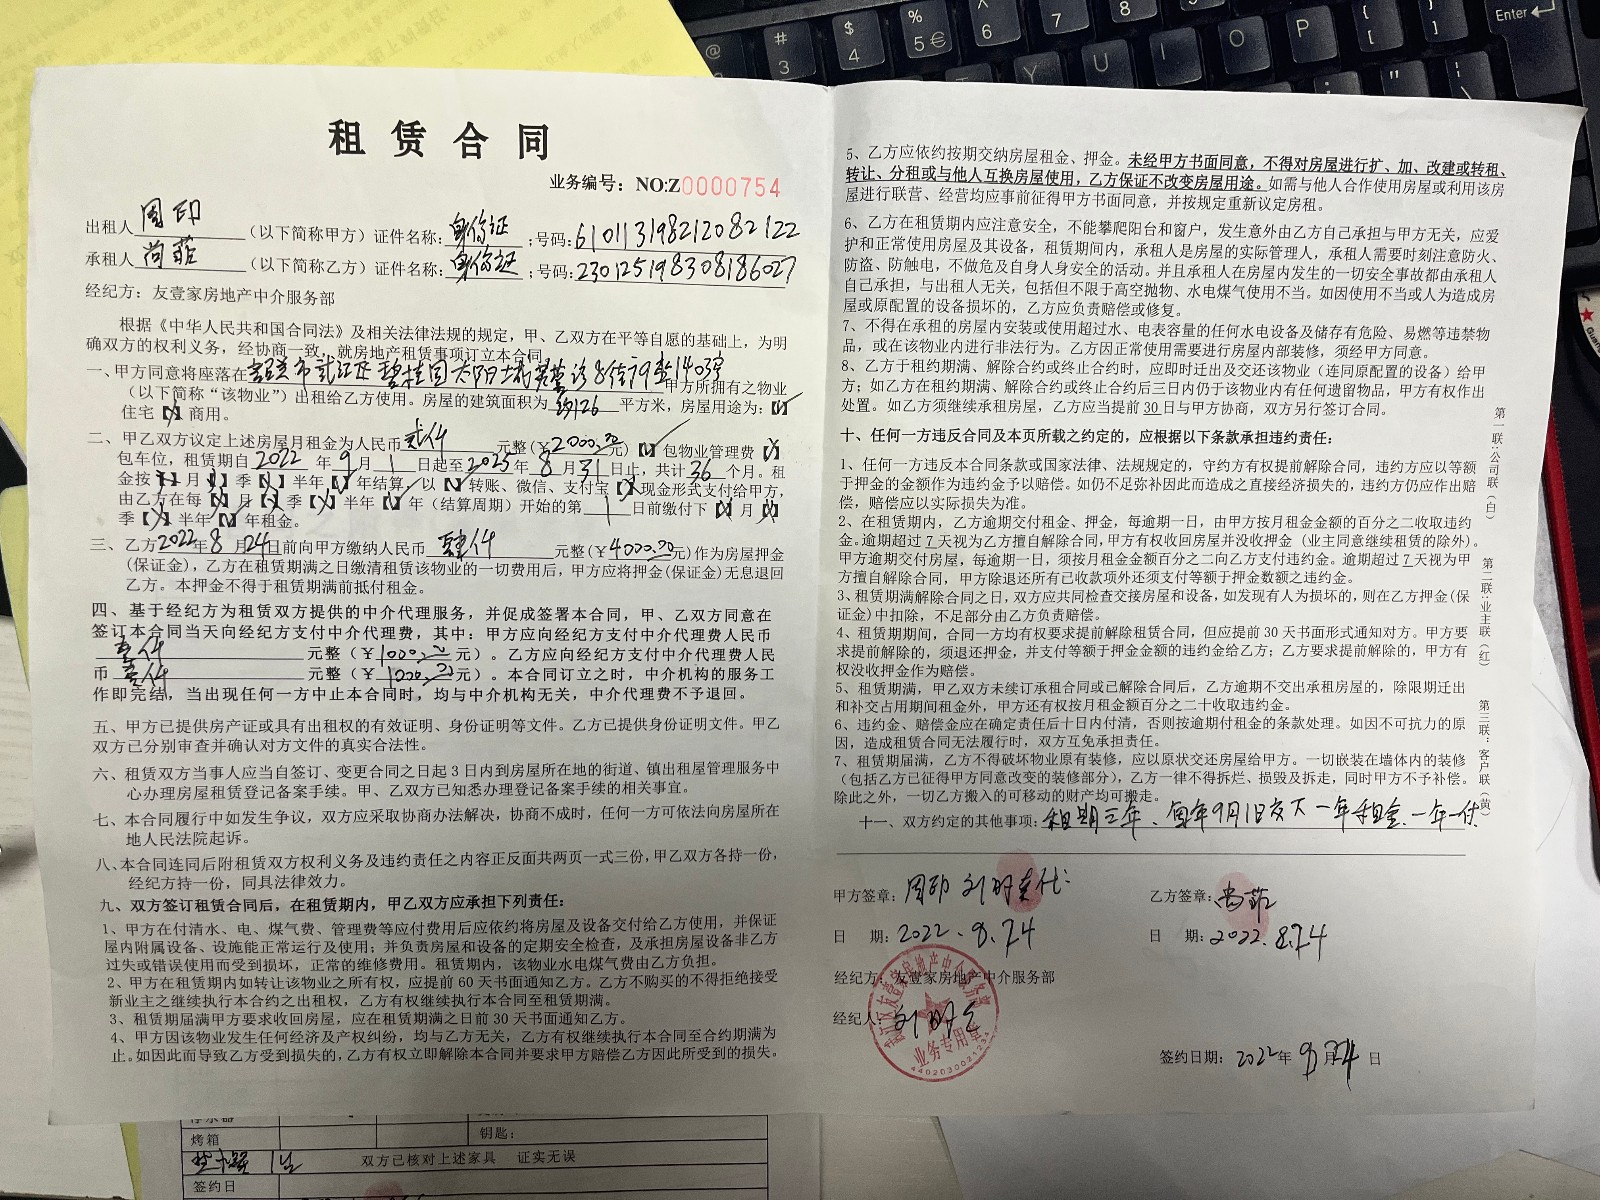 租赁合同
业务编号：NO:Z0000754
出租人 周印 （以下简称甲方）证件名称：身份证；号码：610113198212082122
承租人 尚菲 （以下简称乙方）证件名称：身份证；号码：230125198308186027
经纪方：友壹家房地产中介服务部
根据《中华人民共和国合同法》及相关法律法规的规定，甲、乙双方在平等自愿的基础上，为明
确双方的权利义务，经协商一致，就房地产租赁事项订立本合同。
一、甲方同意将座落在韶关市武江区碧桂园太阳城翠荟8街 1403房甲方所拥有之物业
（以下简称“该物业”）出租给乙方使用。房屋的建筑面积为 约126 平方米，房屋用途为：【】
住宅【】商用。
二、甲乙双方议定上述房屋月租金为人民币 贰仟 元整（¥2000.00元）【】包物业管理费【】
包车位，租赁期自2022年9月1日起至2025年8月31日止，共计36个月。租
金按【】月【】季【】半年【】年结算，以【】转账、微信、支付宝【】现金形式支付给甲方，
由乙方在每【】月【】季【】半年【】年（结算周期）开始的第 1 日前缴付下【】月【】
季【】半年【】年租金。
三、乙方2022年8月24日前向甲方缴纳人民币 肆仟 元整（¥4000.00元）作为房屋押金
（保证金），乙方在租赁期满之日缴清租赁该物业的一切费用后，甲方应将押金（保证金）无息退回
乙方。本押金不得于租赁期满前抵付租金。
四、基于经纪方为租赁双方提供的中介代理服务，并促成签署本合同，甲、乙双方同意在
签订本合同当天向经纪方支付中介代理费，其中：甲方应向经纪方支付中介代理费人民币
壹仟 元整（¥1000.00元）。乙方应向经纪方支付中介代理费人民
币 壹仟 元整（¥1000.00元）。本合同订立之时，中介机构的服务工
作即完结，当出现任何一方中止本合同时，均与中介机构无关，中介代理费不予退回。
五、甲方已提供房产证或具有出租权的有效证明、身份证明等文件。乙方已提供身份证明文件。甲乙
双方已分别审查并确认对方文件的真实合法性。
六、租赁双方当事人应当自签订、变更合同之日起3日内到房屋所在地的街道、镇出租屋管理服务中
心办理房屋租赁登记备案手续。甲、乙双方已知悉办理登记备案手续的相关事宜。
七、本合同履行中如发生争议，双方应采取协商办法解决，协商不成时，任何一方可依法向房屋所在
地人民法院起诉。
八、本合同连同后附租赁双方权利义务及违约责任之内容正反面共两页一式三份，甲乙双方各持一份，
经纪方持一份，同具法律效力。
九、双方签订租赁合同后，在租赁期内，甲乙双方应承担下列责任：
1、甲方在付清水、电、煤气费、管理费等应付费用后应依约将房屋及设备交付给乙方使用，并保证
屋内附属设备、设施能正常运行及使用；并负责房屋和设备的定期安全检查，及承担房屋设备非乙方
过失或错误使用而受到损坏，正常的维修费用。租赁期内，该物业水电煤气费由乙方负担。
2、甲方在租赁期内如转让该物业之所有权，应提前60天书面通知乙方。乙方不购买的不得拒绝接受
新业主之继续执行本合约之出租权，乙方有权继续执行本合同至租赁期满。
3、租赁期届满甲方要求收回房屋，应在租赁期满之日前30天书面通知乙方。
4、甲方因该物业发生任何经济及产权纠纷，均与乙方无关，乙方有权继续执行本合同至合约期满为
止。如因此而导致乙方受到损失的，乙方有权立即解除本合同并要求甲方赔偿乙方因此所受到的损失。
5、乙方应依约按期交纳房屋租金、押金。未经甲方书面同意，不得对房屋进行扩、加、改建或转租、
转让、分租或与他人互换房屋使用，乙方保证不改变房屋用途。如需与他人合作使用房屋或利用该房
屋进行联营、经营均应事前征得甲方书面同意，并按规定重新议定房租。
6、乙方在租赁期内应注意安全，不能攀爬阳台和窗户，发生意外由乙方自己承担与甲方无关，应爱
护和正常使用房屋及其设备，租赁期间内，承租人是房屋的实际管理人，承租人需要时刻注意防火、
防盗、防触电，不做危及自身人身安全的活动。并且承租人在房屋内发生的一切安全事故都由承租人
自己承担，与出租人无关，包括但不限于高空抛物、水电煤气使用不当。如因使用不当或人为造成房
屋或原配置的设备损坏的，乙方应负责赔偿或修复。
7、不得在承租的房屋内安装或使用超过水、电表容量的任何水电设备及储存有危险、易燃等违禁物
品，或在该物业内进行非法行为。乙方因正常使用需要进行房屋内部装修，须经甲方同意。
8、乙方于租约期满、解除合约或终止合约时，应即时迁出及交还该物业（连同原配置的设备）给甲
方；如乙方在租约期满、解除合约或终止合约后三日内仍于该物业内有任何遗留物品，甲方有权作出
处置。如乙方须继续承租房屋，乙方应当提前30日与甲方协商，双方另行签订合同。
十、任何一方违反合同及本页所载之约定的，应根据以下条款承担违约责任：
1、任何一方违反本合同条款或国家法律、法规规定的，守约方有权提前解除合同，违约方应以等额
于押金的金额作为违约金予以赔偿。如仍不足弥补因此而造成之直接经济损失的，违约方仍应作出赔
偿，赔偿应以实际损失为准。
2、在租赁期内，乙方逾期交付租金、押金，每逾期一日，由甲方按月租金金额的百分之二收取违约
金。逾期超过7天视为乙方擅自解除合同，甲方有权收回房屋并没收押金（业主同意继续租赁的除外）。
甲方逾期交付房屋，每逾期一日，须按月租金金额百分之二向乙方支付违约金。逾期超过7天视为甲
方擅自解除合同，甲方除退还所有已收款项外还须支付等额于押金数额之违约金。
3、租赁期满解除合同之日，双方应共同检查交接房屋和设备，如发现有人为损坏的，则在乙方押金（保
证金）中扣除，不足部分由乙方负责赔偿。
4、租赁期期间，合同一方均有权要求提前解除租赁合同，但应提前30天书面形式通知对方。甲方要
求提前解除的，须退还押金，并支付等额于押金金额的违约金给乙方；乙方要求提前解除的，甲方有
权没收押金作为赔偿。
5、租赁期满，甲乙双方未续订承租合同或已解除合同后，乙方逾期不交出承租房屋的，除限期迁出
和补交占用期间租金外，甲方还有权按月租金金额百分之二十收取违约金。
6、违约金、赔偿金应在确定责任后十日内付清，否则按逾期付租金的条款处理。如因不可抗力的原
因，造成租赁合同无法履行时，双方互免承担责任。
7、租赁期届满，乙方不得破坏物业原有装修，应以原状交还房屋给甲方。一切嵌装在墙体内的装修
（包括乙方已征得甲方同意改变的装修部分），乙方一律不得拆烂、损毁及拆走，同时甲方不予补偿。
除此之外，一切乙方搬入的可移动的财产均可搬走。
十一、双方约定的其他事项：租期三年、每年9月1日交下一年租金、一年一付
第一联：公司联（白）
第二联：业主联（红）
第三联：客户联（黄）
甲方签章：周印 刘时 代
乙方签章：尚菲
日 期：2022.8.24
日 期：2022.8.24
经纪方：友壹家房地产中介服务部
经纪人：刘时
业务专用章
签约日期：2022年 月24日
烤箱
钥匙：
双方已核对上述家具 证实无误
签约日